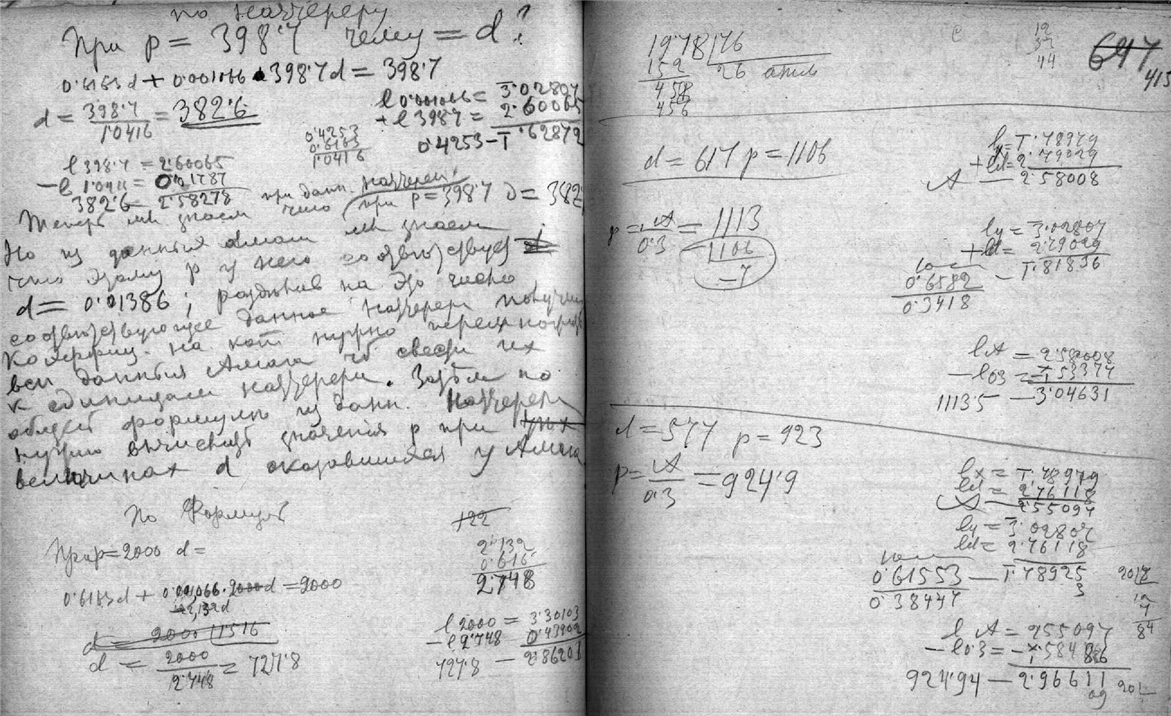 по каччереру
При p = 398·7 чему = d?
0·6163d + 0·001066 · 398·7d = 398·7
d = 398·7 / 1·0416 = 382·6
l 0·001066 = 3̅·02807
+ l 398·7 = 2·60065
0·4253 – 1̅·62872
0·4253
0·6163
1·0416
l 398·7 = 2·60065
– l 1·0411 = 0·01787
382·6 – 2·58278
при данн. каччерер.
Теперь мы знаем что при p = 398·7 D = 382,
Но из данных Амага мы знаем
что этому p у него соответствует
d = 0·01386; разделив на это число
соответствующее данное каччерера получим
коэффиц. на кот. нужно перемножить
все данныя Амага чтоб свести их
к единицам каччерера. Затем по
общей формуле из данн. каччерера
нужно вычислить значения p при
величинах d оказавшихся у Амага
По Формуле
При p = 2000 d =
0·6163d + 0·001066·2000d = 2000
2,132d
d = 2000 | 1516
d = 2000 / 2·748 = 727·8
+22
2·132
0·616
2·748
l 2000 = 3·30103
– l 2·748 = 0·43902
727·8 – 2·86201
1978 | 76
152 26 атм
458
456
12
32
44
617
415
d = 617 p = 1106
lx = 1̅·78979
+ ld = 2·79029
A – 2·58008
p = A / 0·3 = 1113
1106
–7
ly = 3̅·02807
+ ld = 2·79029
– 1̅·81836
0·6582
0·3418
lA = 2·58008
– l 0·3 = 1̅·53377
1113·5 – 3·04631
d = 577 p = 923
p = A / 0·3 = 924·9
lx = 1̅·78979
ld = 2·76118
A – 2·55097
ly = 3̅·02807
ld = 2·76118
0·61553 – 1̅·78925
0·38447
l A = 2·55097
– l 0·3 = 1̅·58486
924·94 – 2·96611